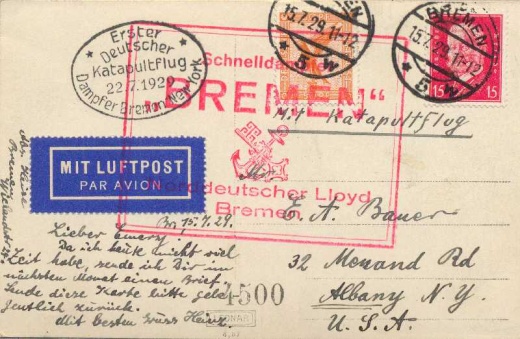 Erster
Deutscher
Katapultflug
22.7.1929
Dampfer Bremen - New York
15.7.29.11-12
BREMEN
15.7.29.11-12
5
5 w
15 15
"BREMEN"
Mit Katapultflug
MIT LUFTPOST
PAR AVION
Norddeutscher Lloyd
Bremen
E. A. Bauer
32 Menand Rd
Albany N.Y.
U.S.A.
Br, 15.7.29.
Lieber Emery
Da ich heute nicht viel
Zeit habe, sende ich Dir im
nächsten Monat einen Brief.
Sende diese Karte bitte gele-
gentlich zurück.
Mit besten Gruss Heinz.
Abs. Heinz
Bremen
4500